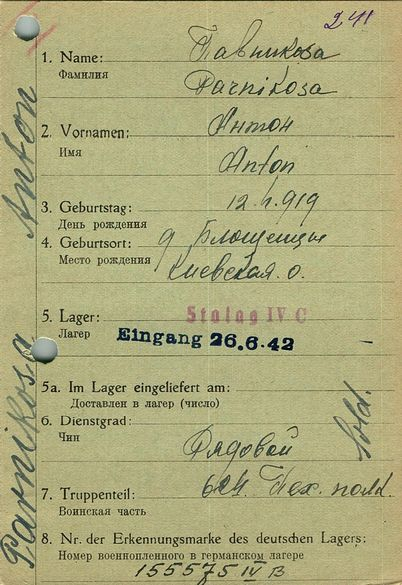 241
1. Name: Павникоза
Фамилия Parnikosa
2. Vornamen: Антон
Имя Anton
3. Geburtstag: 12.1.919
День рождения
4. Geburtsort: д. Блощенцы
Место рождения Киевская о.
5. Lager: Stalag IV C
Лагер Eingang 26.6.42
5a. Im Lager eingeliefert am:
Доставлен в лагер (число)
6. Dienstgrad: Sold.
Чин Рядовой
7. Truppenteil: Пех. полк.
Воинская часть
8. Nr. der Erkennungsmarke des deutschen Lagers:
Номер военнопленного в германском лагере
155575 IV B
Parnikosa Anton